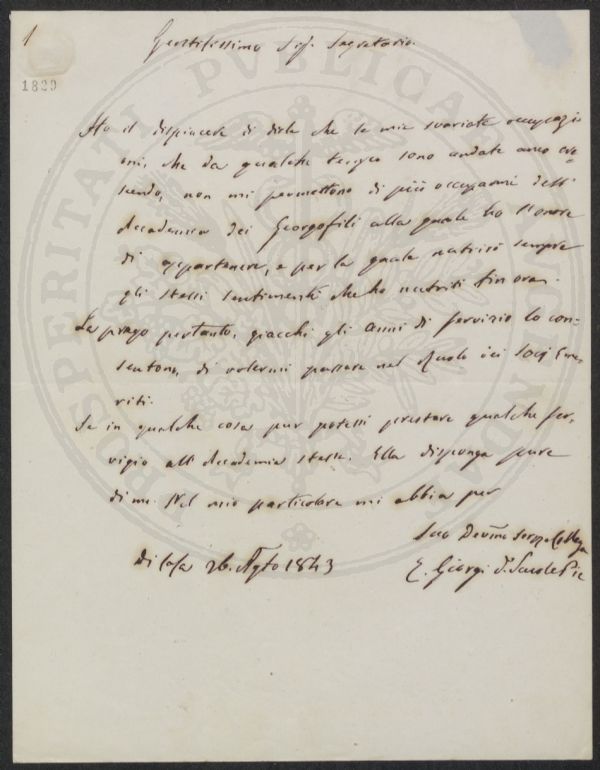 1
1829
Gentilissimo Sig. Segretario.
Ho il dispiacere di dirle che le mie svariate occupazio
ni, che da qualche tempo sono andate anco cre=
scendo, non mi permettono di più occuparmi dell'
Accademia dei Georgofili alla quale ho l'onore
di appartenere, e per la quale nutrirò sempre
gli stessi sentimenti che ho nutriti fin ora.
La prego pertanto, giacchè gli anni di servizio lo con=
sentono, di volermi passare nel Ruolo dei Socj Eme=
riti.
Se in qualche cosa pur potessi prestare qualche ser=
vigio all'Accademia stessa, Ella disponga pure
di me. Nel mio particolare mi abbia per
Suo Devmo Collega
Di Casa 26. Agto 1843
E. Giorgi d. Scuole Pie
PROSPERITATI PVBLICAE AVGENDAE